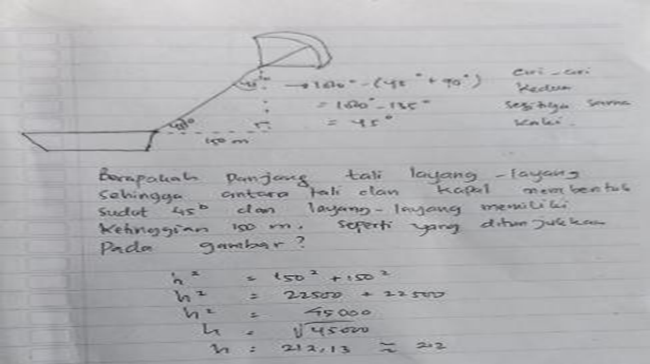 45°
→ 180° - (45° + 90°)
= 180° - 135°
= 45°
ciri - ciri
kedua
segitiga sama
kaki.
45°
150 m
Berapakah Panjang tali layang - layang
sehingga antara tali dan kapal membentuk
sudut 45° dan layang - layang memiliki
ketinggian 150 m. seperti yang ditunjukkan
Pada gambar?
h² = 150² + 150²
h² = 22500 + 22500
h² = 45000
h = √45000
h = 212,13 ≈ 212